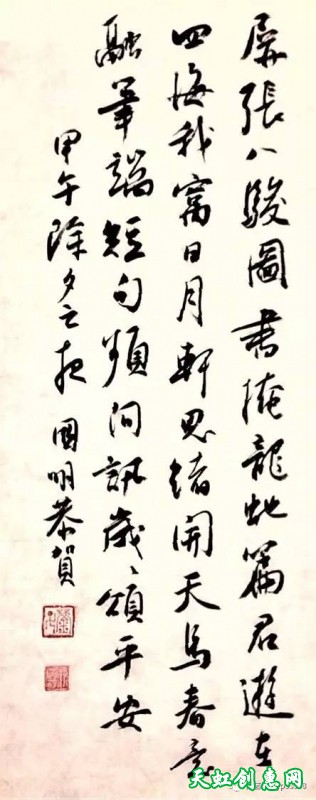 屏張八駿圖書掩龍蛇篇君遊在
四海我寓日月軒思緒開天馬春意
融筆端短句頻問訊歲歲頌平安
甲午除夕之夜 國明恭賀
天虹创意网